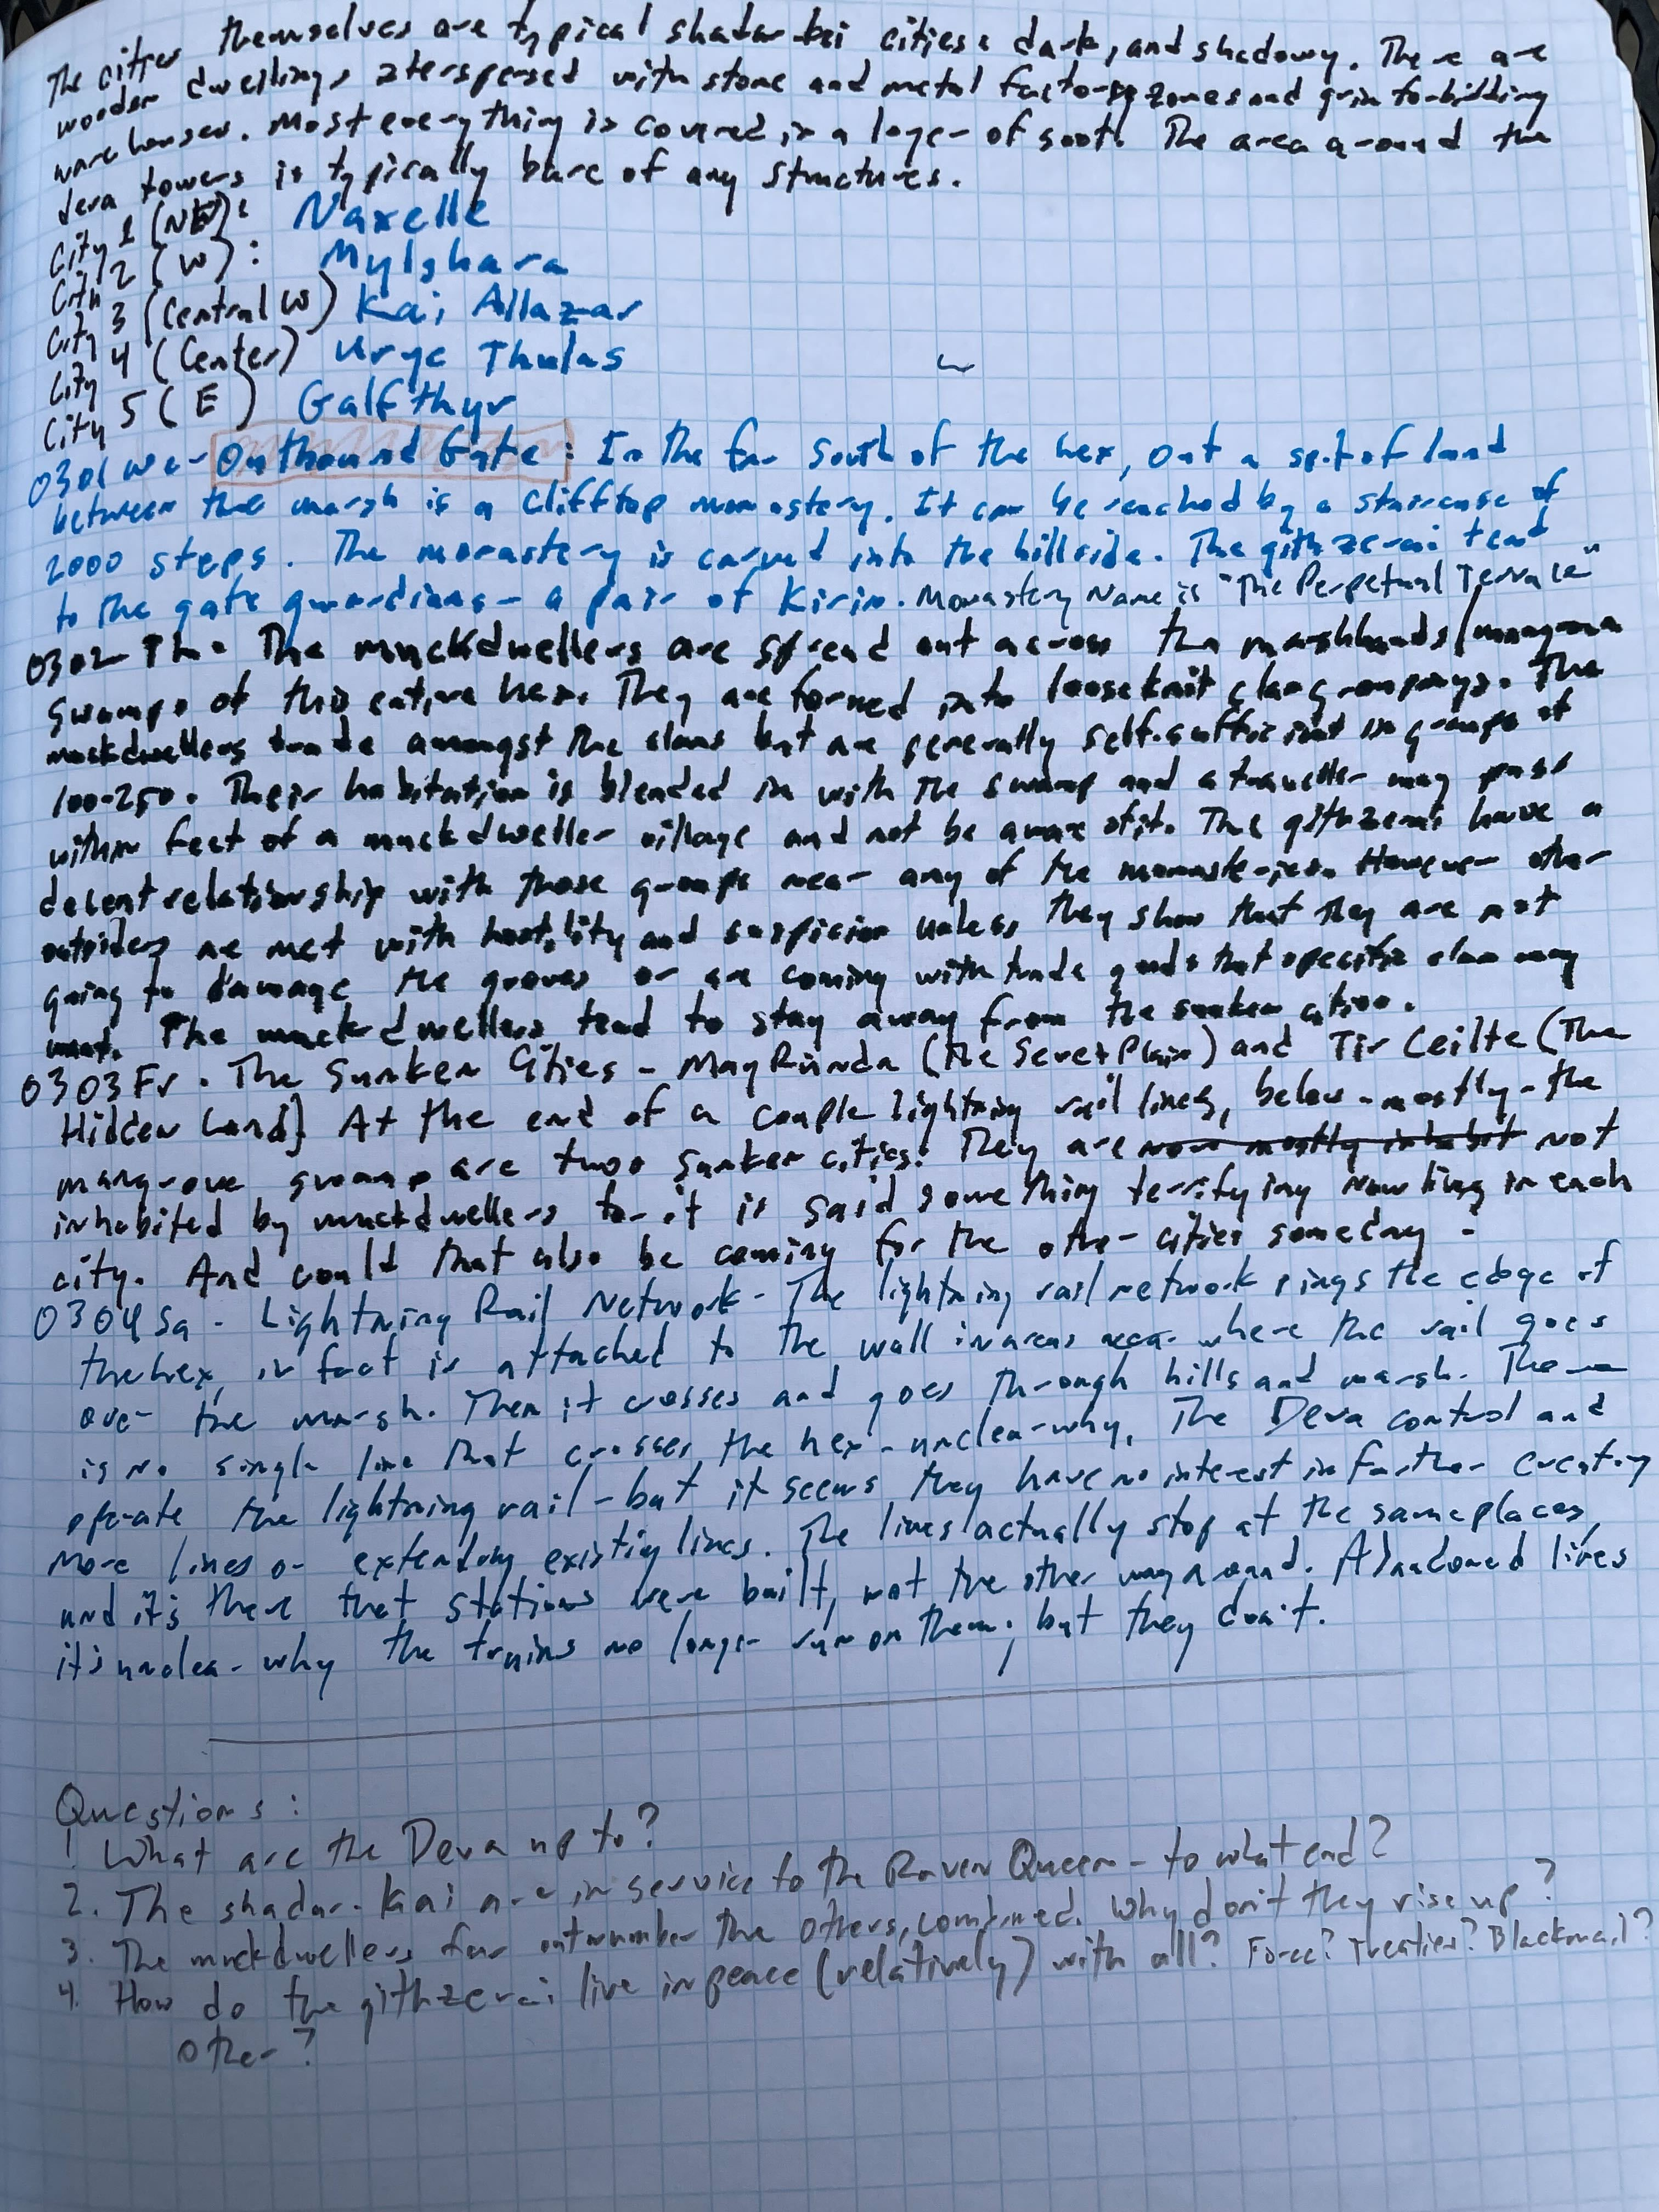 The cities themselves are typical shadar-kai cities: dark, and shadowy. There are
wooden dwellings interspersed with stone and metal factory zones and grim forbidding
warehouses. Most everything is covered in a layer of soot. The area around the
deva towers is typically bare of any structures.
City 1 (NW): Naxelle
City 2 (W): Mylghara
City 3 (Central W) Kai Allazar
City 4 (Center) Uryc Thulas
City 5 (E) Galfthyr
0301 We - Outbound Gate: In the far south of the hex, out a spit of land
between the marsh is a clifftop monastery. It can be reached by a staircase of
2000 steps. The monastery is carved into the hillside. The githzerai tend
to the gate guardians - a pair of Kirin. Monastery Name is "The Perpetual Terrace"
0302 Th. The muckdwellers are spread out across the marshlands/mangrove
swamps of this entire hex. They are formed into looseknit clan groupings. The
muckdwellers trade amongst the clans but are generally self-sufficient in groups of
100-250. Their habitation is blended in with the swamp and a traveller may pass
within feet of a muckdweller village and not be aware of it. The githzerai have a
decent relationship with those groups near any of the monasteries. However other
outsiders are met with hostility and suspicion unless they show that they are not
going to damage the groves or are coming with trade goods that specific clan may
want. The muckdwellers tend to stay away from the sunken cities.
0303 Fr. The Sunken Cities - Mag Rúnda (The Secret Plain) and Tir Ceilte (The
Hidden Land) At the end of a couple lightning rail lines, below - mostly - the
mangrove swamp are two sunken cities. They are now mostly inhabit not
inhabited by muckdwellers for it is said something terrifying now lives in each
city. And could that also be coming for the other cities someday.
0304 Sa - Lightning Rail Network - The lightning rail network rings the edge of
the hex, in fact is attached to the wall in areas near where the rail goes
over the marsh. Then it crosses and goes through hills and marsh. There
is no single line that crosses the hex - unclear why. The Deva control and
operate the lightning rail - but it seems they have no interest in further creating
more lines or extending existing lines. The lines actually stop at the same places,
and it's there that stations were built, not the other way around. Abandoned lines
it's unclear why the trains no longer run on them; but they don't.
Questions:
1 What are the Deva up to?
2. The shadar-kai are in service to the Raven Queen - to what end?
3. The muckdwellers far outnumber the others, combined. Why don't they rise up?
4. How do the githzerai live in peace (relatively) with all? Force? Treaties? Blackmail?
Other?